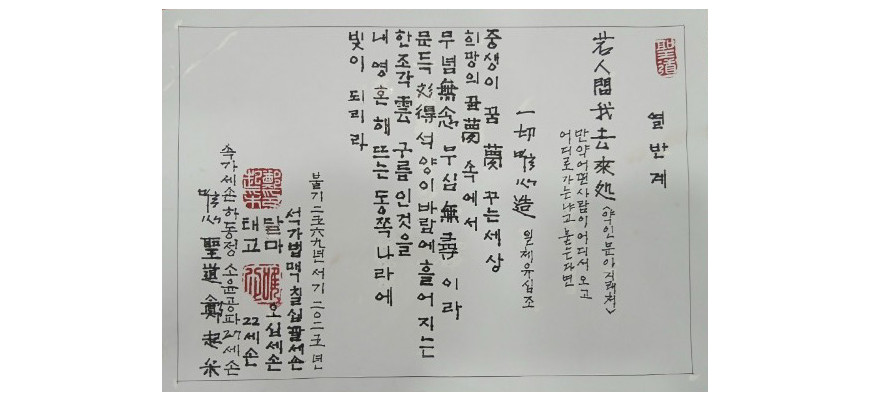 聖道
열반계
若人間我去來処 〈약인문아거래처〉
만약어떤사람이어디서오고
어디로가는냐고묻는다면
一切唯心造 일체유심조
중생이 꿈 夢 꾸는세상
희망의 꿈夢 속에서
무념無念 무심無 이라
문득 得 석양이바람에흘어지는
한조각雲 구름인것을
내 영혼 해뜨는 동쪽나라에
빛이 되리라
불기二五六九년 서기二०二五년
석가법맥칠십팔세손
달마 오십세손
태고 22세손
속가세손하동정 소윤공파27세손
唯心 聖道 鄭起采